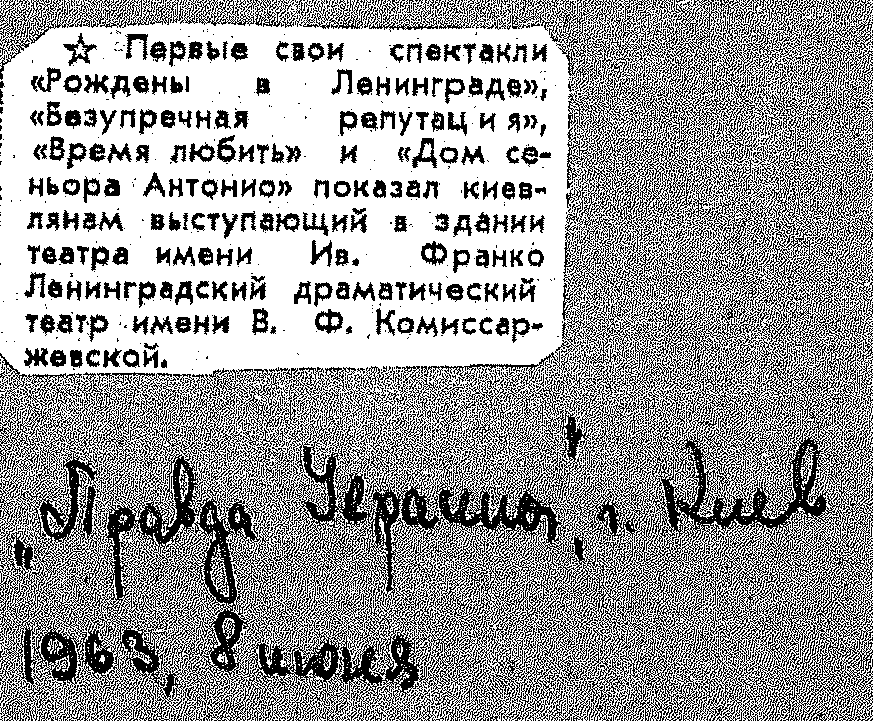 ☆ Первые свои спектакли
«Рождены в Ленинграде»,
«Безупречная репутация»,
«Время любить» и «Дом се-
ньора Антонио» показал киев-
лянам выступающий в здании
театра имени Ив. Франко
Ленинградский драматический
театр имени В. Ф. Комиссар-
жевской.
„Правда Украины", г. Киев
1963, 8 июня